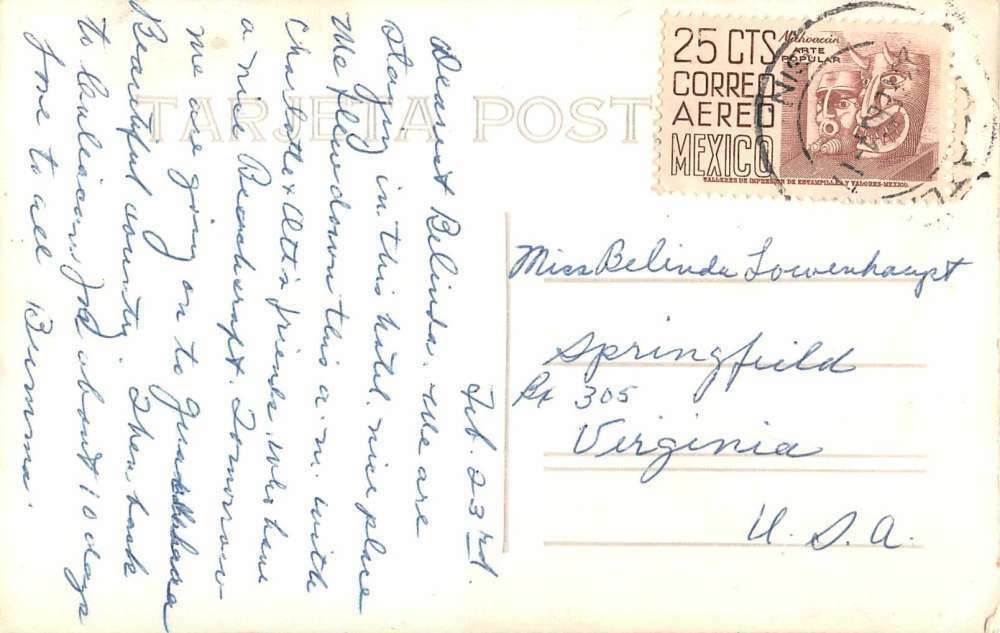 TARJETA POST
25 CTS
CORREO
AEREO
MEXICO
Michoacán
ARTE
POPULAR
TALLERES DE IMPRESION DE ESTAMPILLAS Y VALORES-MEXICO.
Feb. 23rd.
Dearest Belinda. We are
staying in this hotel. nice place
We flew down this a.m. with
Charlotte & Otto's friends, who have
a nice Beachcraft. Tomorrow
we are going on to Guadalhara
Beautiful country. Then back
to Culiacan for about 10 days
love to all Bimma.
Miss Belinda Lowenhaupt
Springfield
Bx 305
Virginia
U. S. A.